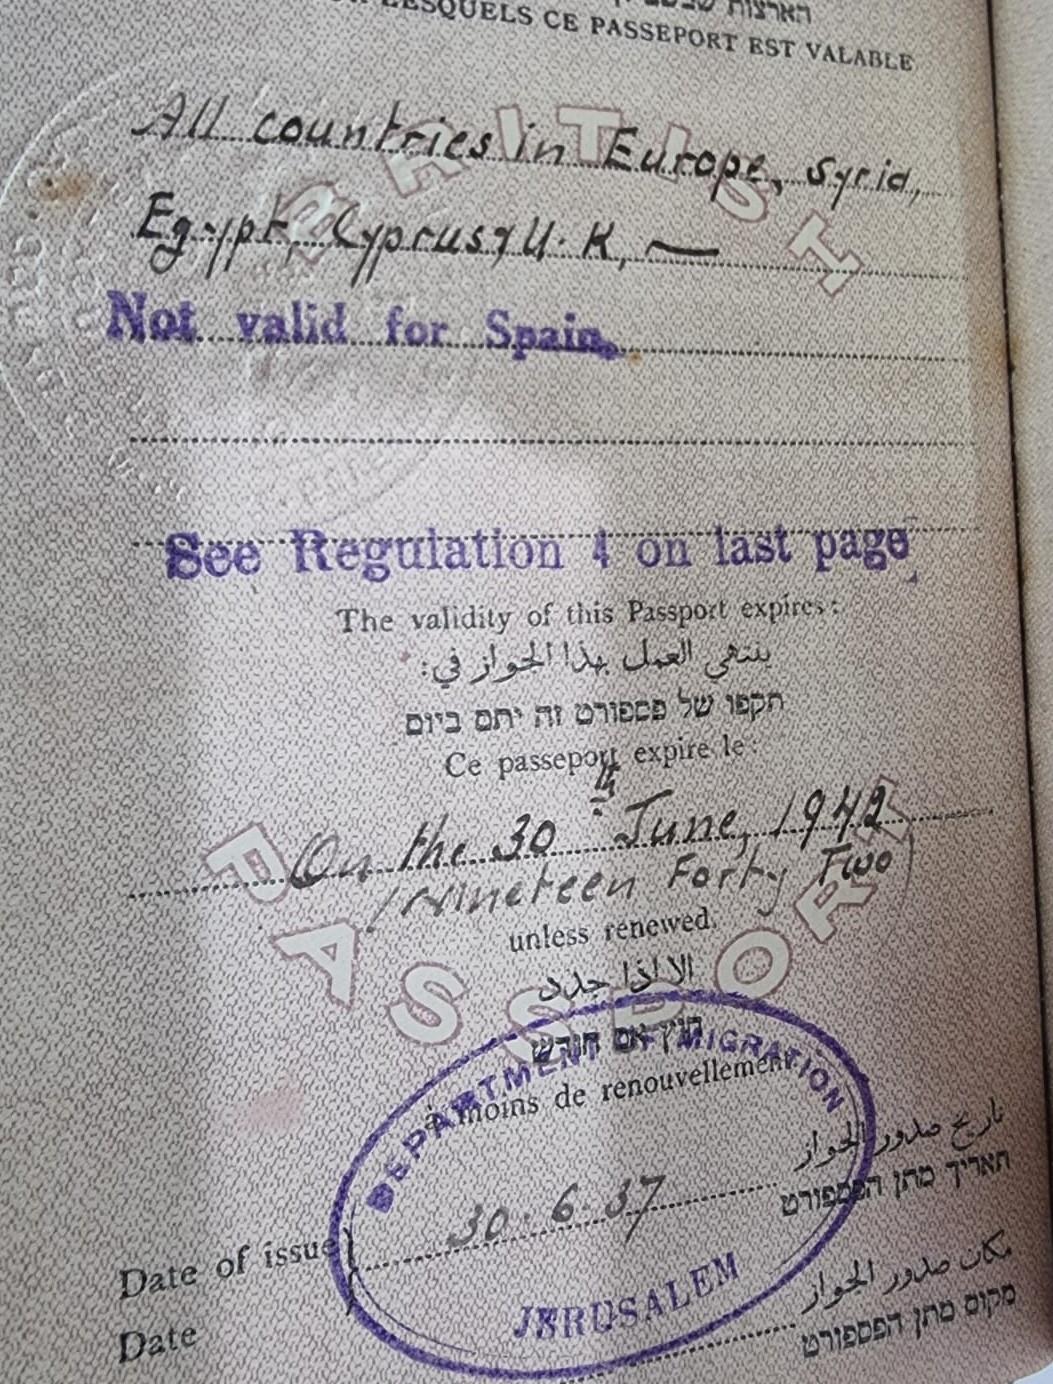 LESQUELS CE PASSEPORT EST VALABLE
All countries in Europe, Syria,
Egypt, Cyprus, U.K,—
Not valid for Spain.
See Regulation 4 on last page
The validity of this Passport expires:
ينتهي العمل بهذا الجواز في:
תקפו של פספורט זה יתם ביום
Ce passeport expire le:
On the 30th June, 1942
(Nineteen Forty Two)
unless renewed.
الا اذا جدد
חוץ אם חודש
à moins de renouvellement
DEPARTMENT OF MIGRATION
تاريخ صدور الجواز
תאריך מתן הפספורט
Date of issue
30.6.37
JERUSALEM
مكان صدور الجواز
מקום מתן הפספורט
Date
BRITISH
PASSPORT